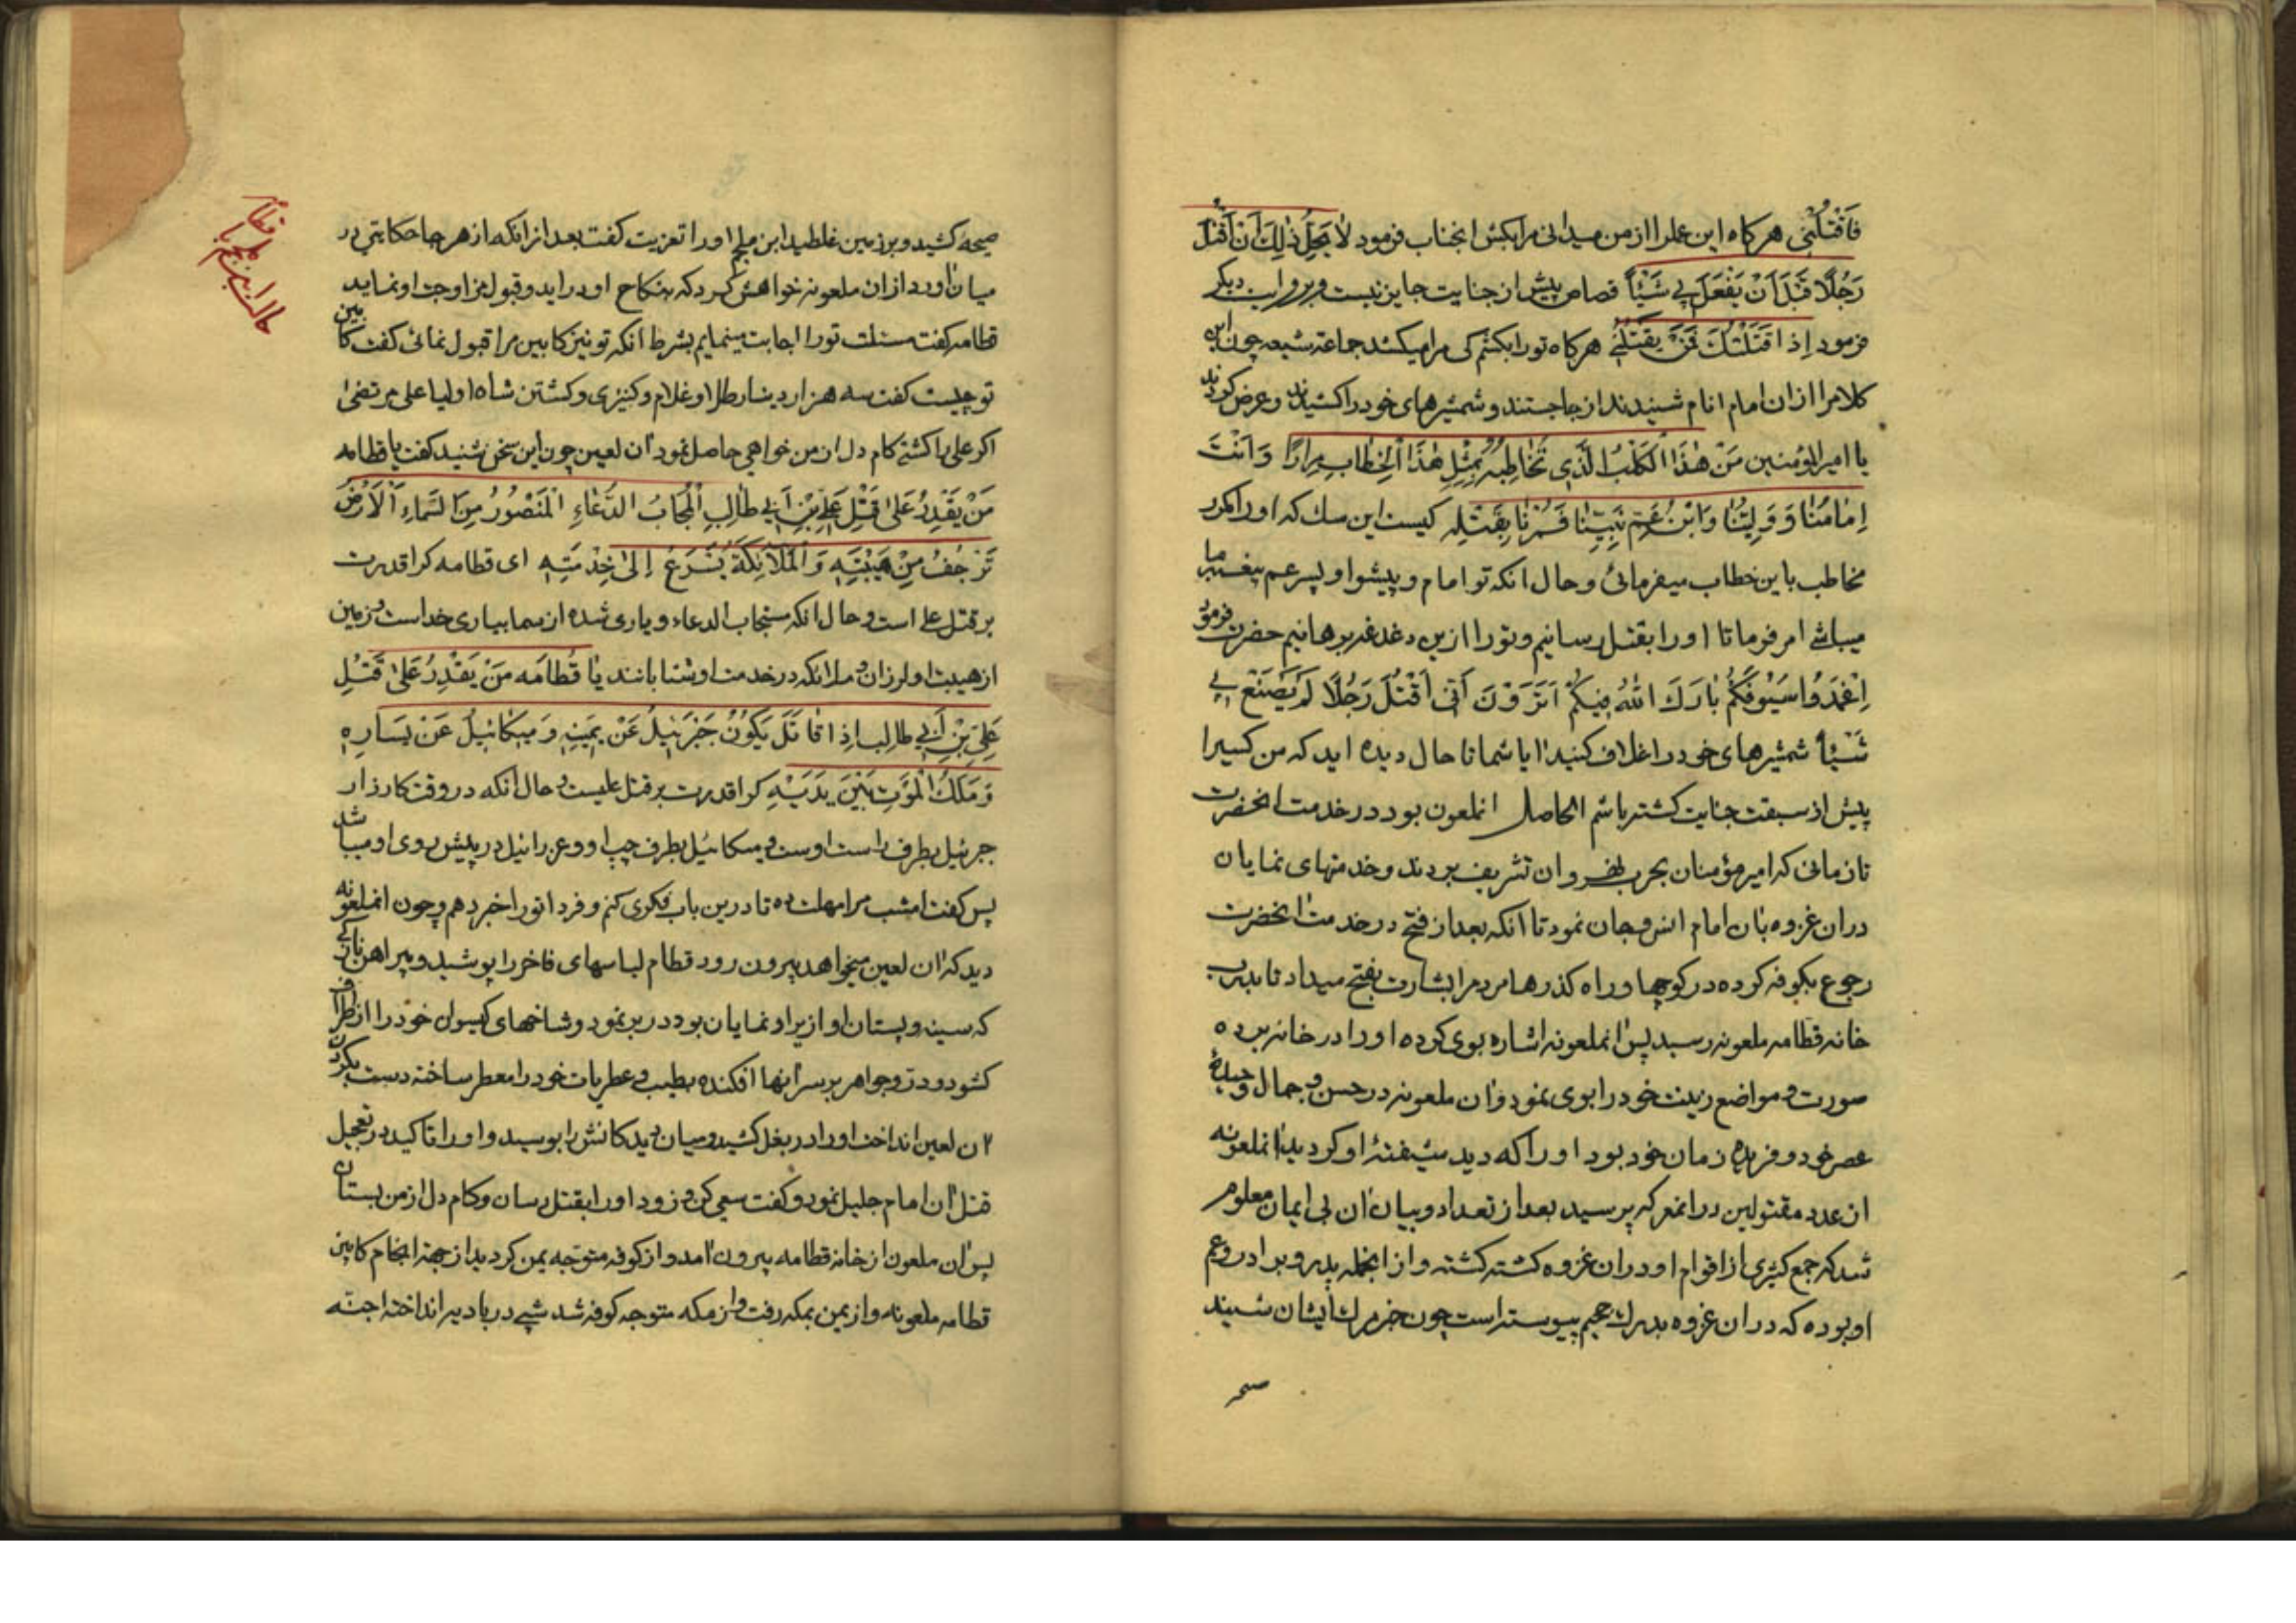 فَاقْتُلْنِی هرکاه این عمل را از من میدانی مرا بکش انجناب فرمود لاٰ یَحِلُّ ذٰلِكَ اَنْ اَقْتُلَ
رَجُلًا قَبْلَ اَنْ یَفْعَلَ بِی شَیْئاً قصاص پیش از جنایت جایز نیست و بروایت دیکر
فرمود اِذا قَتَلْتُكَ فَمَنْ یَقْتُلُنِی هرکاه تو را بکشم کی مرا میکشد جماعة شیعه چون این
کلام را از ان امام انام شنیدند از جا جستند و شمشیرهای خود را کشیدند و عرض کردند
یا امیر المؤمنین مَنْ هٰذَا الْكَلْبُ الَّذِی تُخٰاطِبُهُ بِمِثْلِ هٰذَا الْخِطٰابِ مِرٰارًا وَ اَنْتَ
اِمٰامُنٰا وَ وَلِیُّنٰا وَ ابْنُ عَمِّ نَبِیِّنٰا فَمُرْنٰا بِقَتْلِهِ کیست این سك که او را مکرر
مخاطب باین خطاب میفرمائی و حال انکه تو امام و پیشوا و پسر عم پیغمبر ما
میباشی امر فرما تا او را بقتل رسانیم و تو را ازین دغدغه برهانیم حضرت فرمود
اِغْمِدُوا سُیُوفَكُمْ بٰارَكَ اللّٰهُ فِیكُمْ اَتَرَوْنَ اَنِّی اَقْتُلُ رَجُلًا لَمْ یَصْنَعْ بِی
شَیْئاً شمشیرهای خود را غلاف کنید ایا شما تا حال دیده اید که من کسیرا
پیش از سبقت جنایت کشته باشم الحاصل انملعون بود در خدمت انحضرت
تا زمانی که امیر مؤمنان بحرب نهروان تشریف بردند و خدمتهای نمایان
در ان غزوه بان امام انس و جان نمود تا انکه بعد از فتح در خدمت انحضرت
رجوع بکوفه کرده در کوچها و راه کذرها مردم را بشارت بفتح میداد تا بدرب
خانه قطامه ملعونه رسید پس انملعونه اشاره بوی کرده او را در خانه برده
صورت و مواضع زینت خود را بوی نمود و ان ملعونه در حسن و جمال وحیدهٔ
عصر خود و فریدهٔ زمان خود بود او را که دید شیفتهٔ او کردید انملعونه
از عدد مقتولین در انمعرکه پرسید بعد از تعداد و بیان ان بی ایمان معلوم
شد که جمع کثیری از اقوام او در ان غزوه کشته کشته و از انجمله پدر و برادر و عم
او بوده که در ان غزوه بدرك جحیم پیوسته است چون خبر مرك ایشان شنید
صیحه
صیحه کشید و بر زمین غلطید ابن ملجم او را تعزیت کفت بعد از انکه از هر جا حکایتی در
میان اورد از ان ملعونه خواهش کرد که بنکاح او دراید و قبول مزاوجت او نماید
قطامه کفت مسئلت تو را اجابت مینمایم بشرط انکه تو نیز کابین مرا قبول نمائی کفت کابین
تو چیست کفت سه هزار دینار طلا و غلام و کنیزی و کشتن شاه اولیا علی مرتضیٰ
اکر علی را کشتی کام دل از من خواهی حاصل نمود ان لعین چون این سخن شنید کفت یا قطامه
مَنْ یَقْدِرُ عَلیٰ قَتْلِ عَلِیِّ بْنِ اَبِی طٰالِبِ الْمُجٰابُ الدُّعٰاءِ الْمَنْصُورُ مِنَ السَّمٰاءِ اَلْاَرْضُ
تَرْجُفُ مِنْ هَیْبَتِهِ وَ الْمَلٰائِكَةُ تُسْرِعُ اِلیٰ خِدْمَتِهِ ای قطامه کرا قدرت
بر قتل علی است و حال انکه مستجاب الدعاء و یاری شده از سما بیاری خداست و زمین
از هیبت او لرزان و ملائکه در خدمت او شتابانند یٰا قُطٰامَه مَنْ یَقْدِرُ عَلیٰ قَتْلِ
عَلِیِّ بْنِ اَبِی طالِب اِذا قٰاتَلَ یَكُوْنُ جَبْرَئِیلُ عَنْ یَمِیْنِهِ وَ مِیکٰائِیلُ عَنْ یَسٰارِهِ
وَ مَلَكُ الْمَوْتِ بَیْنَ یَدَیْهِ کرا قدرت بر قتل علیست و حال انکه در وقت کارزار
جبرئیل بطرف راست اوست و میکائیل بطرف چپ او و عزرائیل در پیش روی او میباشد
پس کفت امشب مرا مهلت ده تا درین باب فکری کنم و فردا تو را خبر دهم و چون انملعونه
دید که ان لعین میخواهد بیرون رود قطام لباسهای فاخر را پوشید و پیراهن نازکی
که سینه و پستان او از زیر او نمایان بود در بر نمود و شاخهای کیسوان خود را از اطراف
کشود و در و جواهر بر سر انها افکنده بطیب و عطریات خود را معطر ساخته دست بکردن
ان لعین انداخت او را در بغل کشید و میان دیدکانش را بوسید و او را تاکید در تعجیل
قتل ان امام جلیل نمود و کفت سعی کن و زود او را بقتل رسان و کام دل از من بستان
پس ان ملعون از خانه قطامه بیرون امد و از کوفه متوجه یمن کردید از جهة انجام کابین
قطامه ملعونه و از یمن بمکه رفت و از مکه متوجه کوفه شد شبی در بادیه انداخته اجنّه